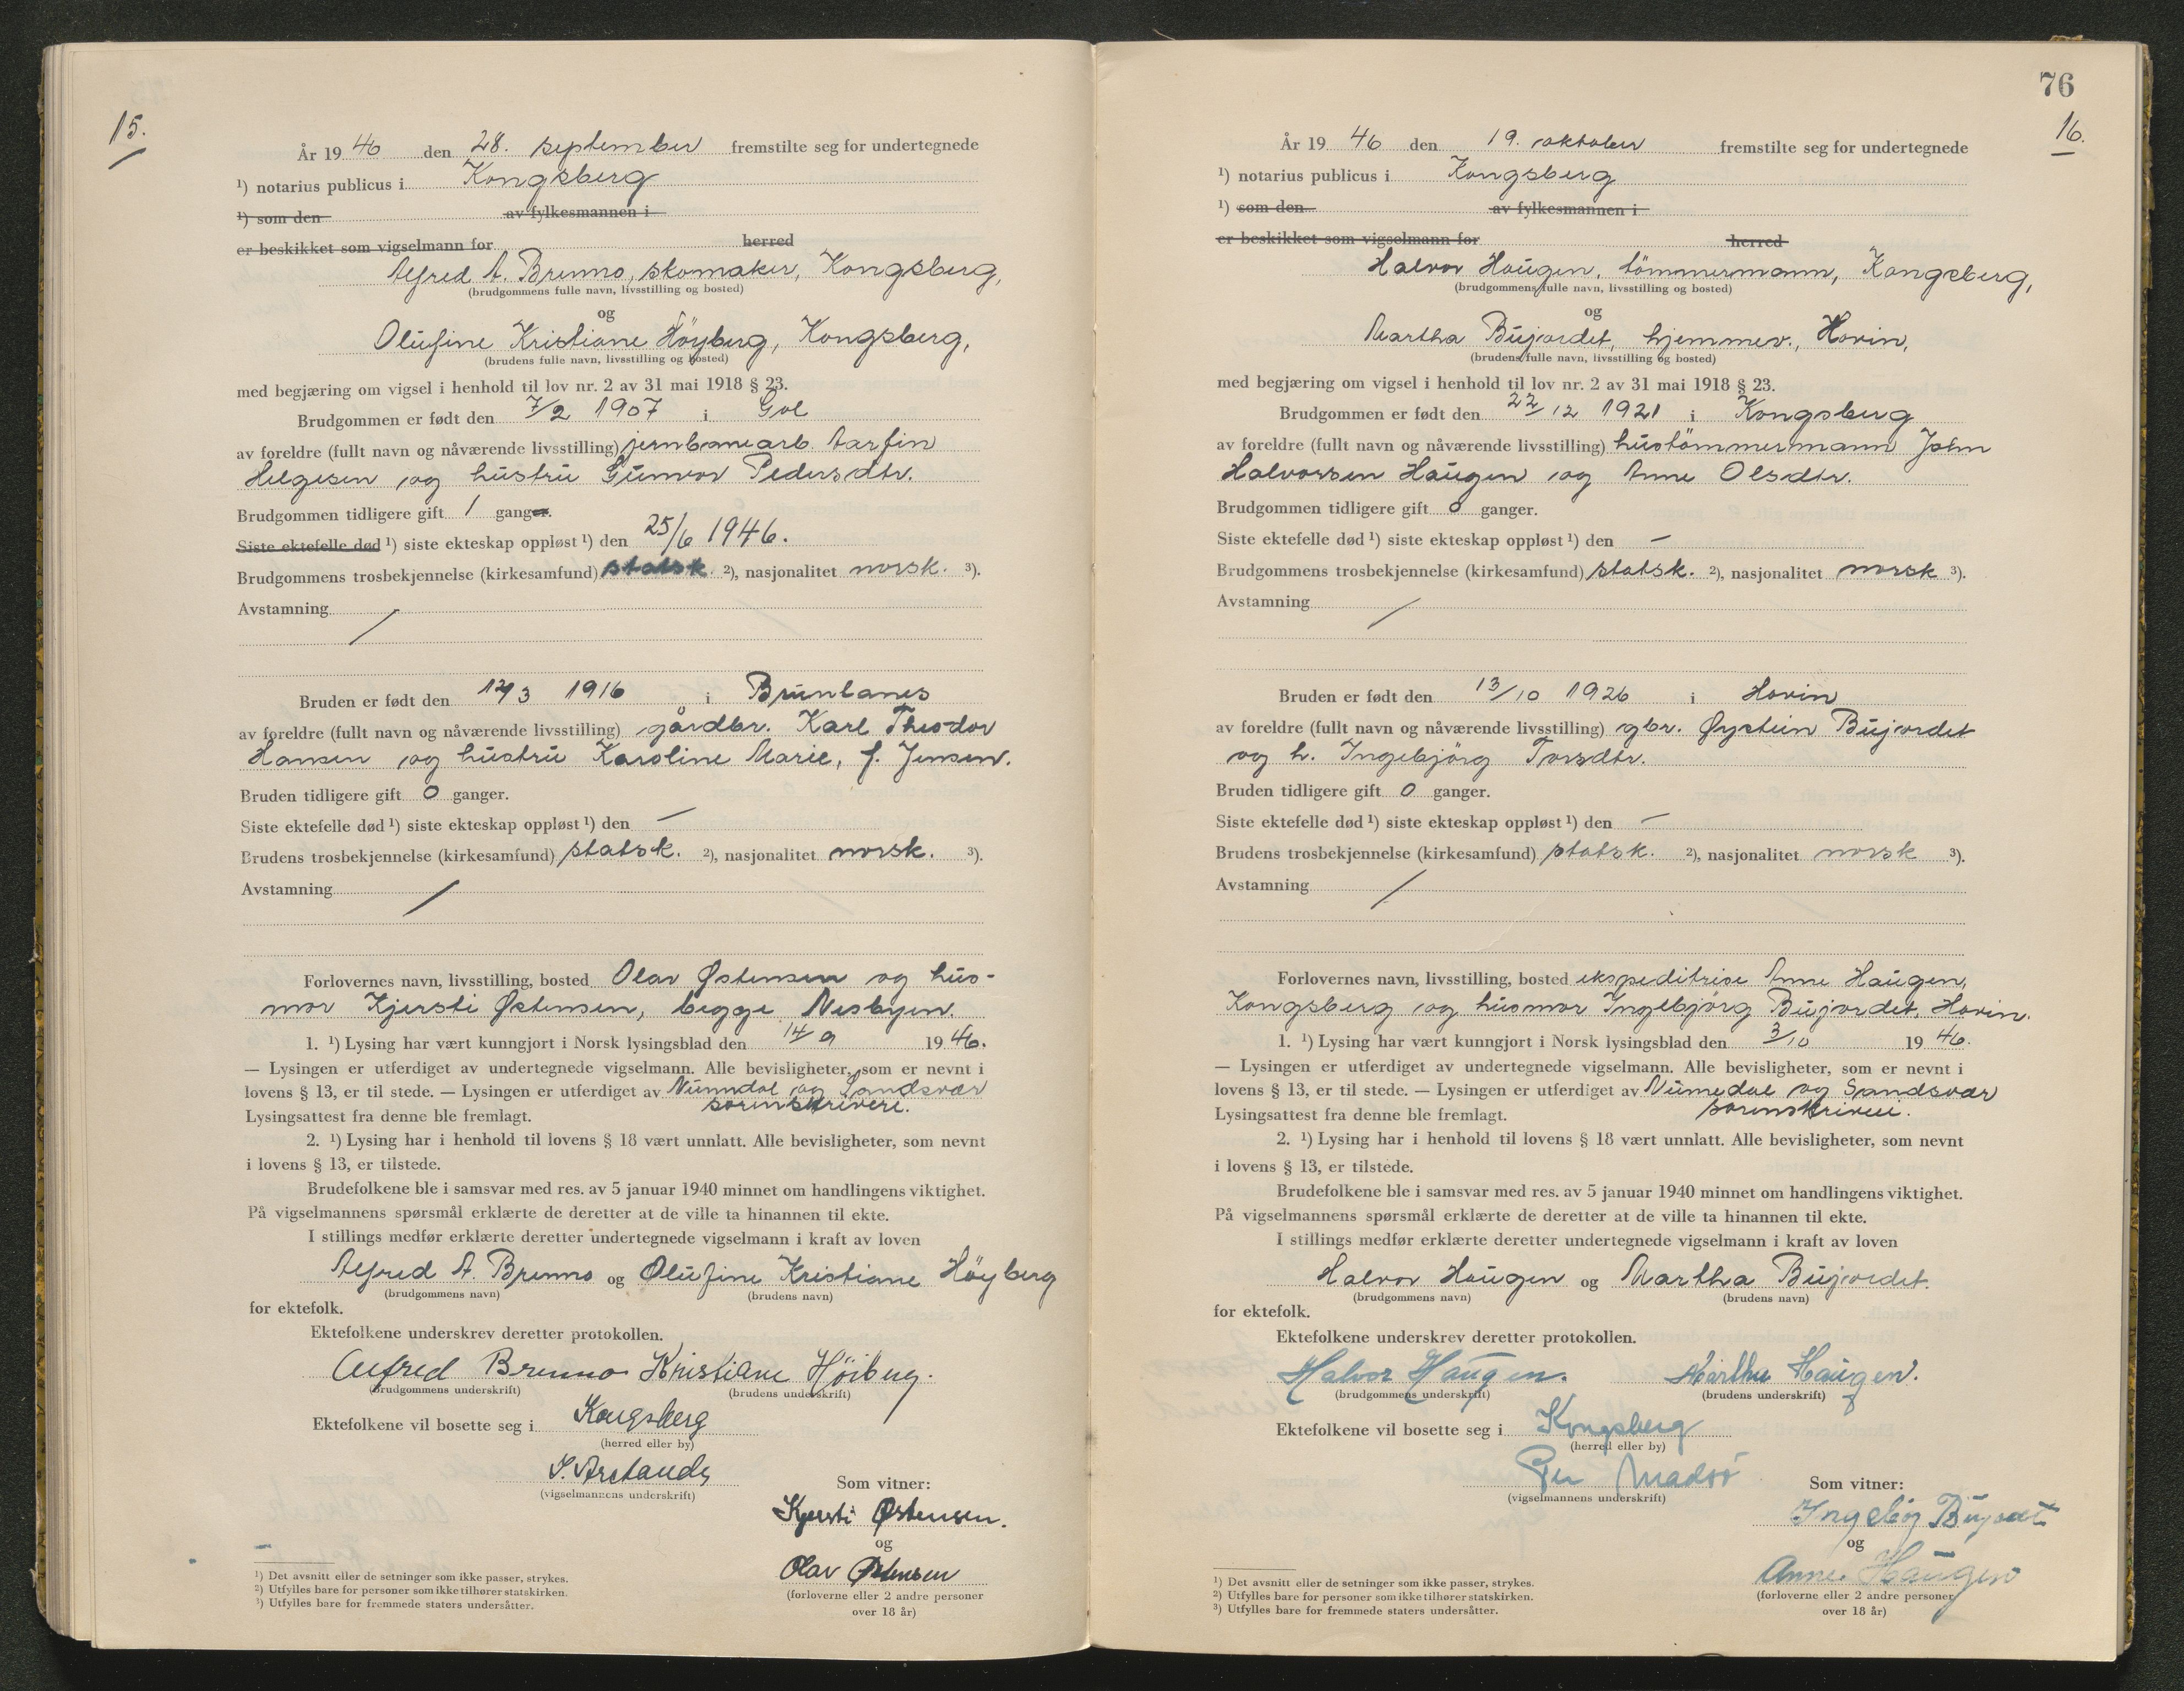 15.
År 1946 den 28. september fremstilte seg for undertegnede
¹) notarius publicus i Kongsberg
¹) som den av fylkesmannen i
er beskikket som vigselmann for herred
Alfred A. Brenno, skomaker, Kongsberg,
(brudgommens fulle navn, livsstilling og bosted)
og
Olufine Kristiane Höyberg, Kongsberg,
(brudens fulle navn, livsstilling og bosted)
med begjæring om vigsel i henhold til lov nr. 2 av 31 mai 1918 § 23.
Brudgommen er født den 7/2 1907 i Gol
av foreldre (fullt navn og nåværende livsstilling) jernbanearb. Aarfin
Helgesen og hustru Gunvor Pedersdtr.
Brudgommen tidligere gift 1 ganger.
Siste ektefelle død ¹) siste ekteskap oppløst ¹) den 25/6 1946.
Brudgommens trosbekjennelse (kirkesamfund) statsk. ²), nasjonalitet norsk. ³).
Avstamning /
Bruden er født den 12/3 1916 i Brunlanes
av foreldre (fullt navn og nåværende livsstilling) gårdbr. Karl Theodor
Hansen og hustru Karoline Marie, f. Jensen.
Bruden tidligere gift 0 ganger.
Siste ektefelle død ¹) siste ekteskap oppløst ¹) den —
Brudens trosbekjennelse (kirkesamfund) statsk. ²), nasjonalitet norsk. ³).
Avstamning /
Forlovernes navn, livsstilling, bosted Olav Østensen og hus-
mor Kjersti Østensen, begge Nesbyen.
1. ¹) Lysing har vært kunngjort i Norsk lysingsblad den 14/9 1946.
— Lysingen er utferdiget av undertegnede vigselmann. Alle bevisligheter, som er nevnt i
lovens § 13, er til stede. — Lysingen er utferdiget av Numedal og Sandsvær
sorenskriveri.
Lysingsattest fra denne ble fremlagt.
2. ¹) Lysing har i henhold til lovens § 18 vært unnlatt. Alle bevisligheter, som nevnt
i lovens § 13, er tilstede.
Brudefolkene ble i samsvar med res. av 5 januar 1940 minnet om handlingens viktighet.
På vigselmannens spørsmål erklærte de deretter at de ville ta hinannen til ekte.
I stillings medfør erklærte deretter undertegnede vigselmann i kraft av loven
Alfred A. Brenno og Olufine Kristiane Höyberg
(brudgommens navn) (brudens navn)
for ektefolk.
Ektefolkene underskrev deretter protokollen.
Alfred Brenno Kristiane Høiberg.
(brudgommens underskrift) (brudens underskrift)
Ektefolkene vil bosette seg i Kongsberg
(herred eller by)
(vigselmannens underskrift)
Som vitner:
Kjersti Østensen.
og
Olav Østensen
(forloverne eller 2 andre personer
over 18 år)
¹) Det avsnitt eller de setninger som ikke passer, strykes.
²) Utfylles bare for personer som ikke tilhører statskirken.
³) Utfylles bare for fremmede staters undersåtter.
76
16.
År 1946 den 19. oktober fremstilte seg for undertegnede
¹) notarius publicus i Kongsberg
¹) som den av fylkesmannen i
er beskikket som vigselmann for herred
Halvor Haugen, tömmermann, Kongsberg,
(brudgommens fulle navn, livsstilling og bosted)
og
Martha Bujordet, hjemmev., Hovin,
(brudens fulle navn, livsstilling og bosted)
med begjæring om vigsel i henhold til lov nr. 2 av 31 mai 1918 § 23.
Brudgommen er født den 22/12 1921 i Kongsberg
av foreldre (fullt navn og nåværende livsstilling) hustömmermann John
Halvorsen Haugen og Anne Olsdtr.
Brudgommen tidligere gift 0 ganger.
Siste ektefelle død ¹) siste ekteskap oppløst ¹) den —
Brudgommens trosbekjennelse (kirkesamfund) statsk. ²), nasjonalitet norsk ³).
Avstamning /
Bruden er født den 13/10 1926 i Hovin
av foreldre (fullt navn og nåværende livsstilling) gbr. Øystein Bujordet
og h. Ingebjörg Torsdtr.
Bruden tidligere gift 0 ganger.
Siste ektefelle død ¹) siste ekteskap oppløst ¹) den —
Brudens trosbekjennelse (kirkesamfund) statsk. ²), nasjonalitet norsk ³).
Avstamning /
Forlovernes navn, livsstilling, bosted ekspeditrise Anne Haugen,
Kongsberg og husmor Ingebjörg Bujordet, Hovin.
1. ¹) Lysing har vært kunngjort i Norsk lysingsblad den 3/10 1946.
— Lysingen er utferdiget av undertegnede vigselmann. Alle bevisligheter, som er nevnt i
lovens § 13, er til stede. — Lysingen er utferdiget av Numedal og Sandsvær
sorenskriveri.
Lysingsattest fra denne ble fremlagt.
2. ¹) Lysing har i henhold til lovens § 18 vært unnlatt. Alle bevisligheter, som nevnt
i lovens § 13, er tilstede.
Brudefolkene ble i samsvar med res. av 5 januar 1940 minnet om handlingens viktighet.
På vigselmannens spørsmål erklærte de deretter at de ville ta hinannen til ekte.
I stillings medfør erklærte deretter undertegnede vigselmann i kraft av loven
Halvor Haugen og Martha Bujordet.
(brudgommens navn) (brudens navn)
for ektefolk.
Ektefolkene underskrev deretter protokollen.
Halvor Haugen. Martha Haugen.
(brudgommens underskrift) (brudens underskrift)
Ektefolkene vil bosette seg i Kongsberg
(herred eller by)
Per Madsö
(vigselmannens underskrift)
Som vitner:
Ingebög Bujordet
og
Anne Haugen
(forloverne eller 2 andre personer
over 18 år)
¹) Det avsnitt eller de setninger som ikke passer, strykes.
²) Utfylles bare for personer som ikke tilhører statskirken.
³) Utfylles bare for fremmede staters undersåtter.